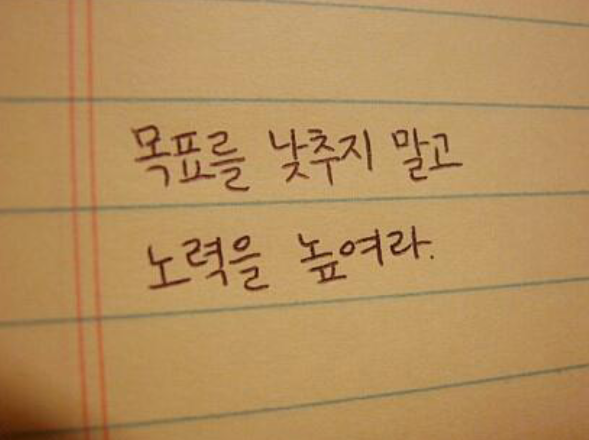 목표를 낮추지 말고
노력을 높여라.